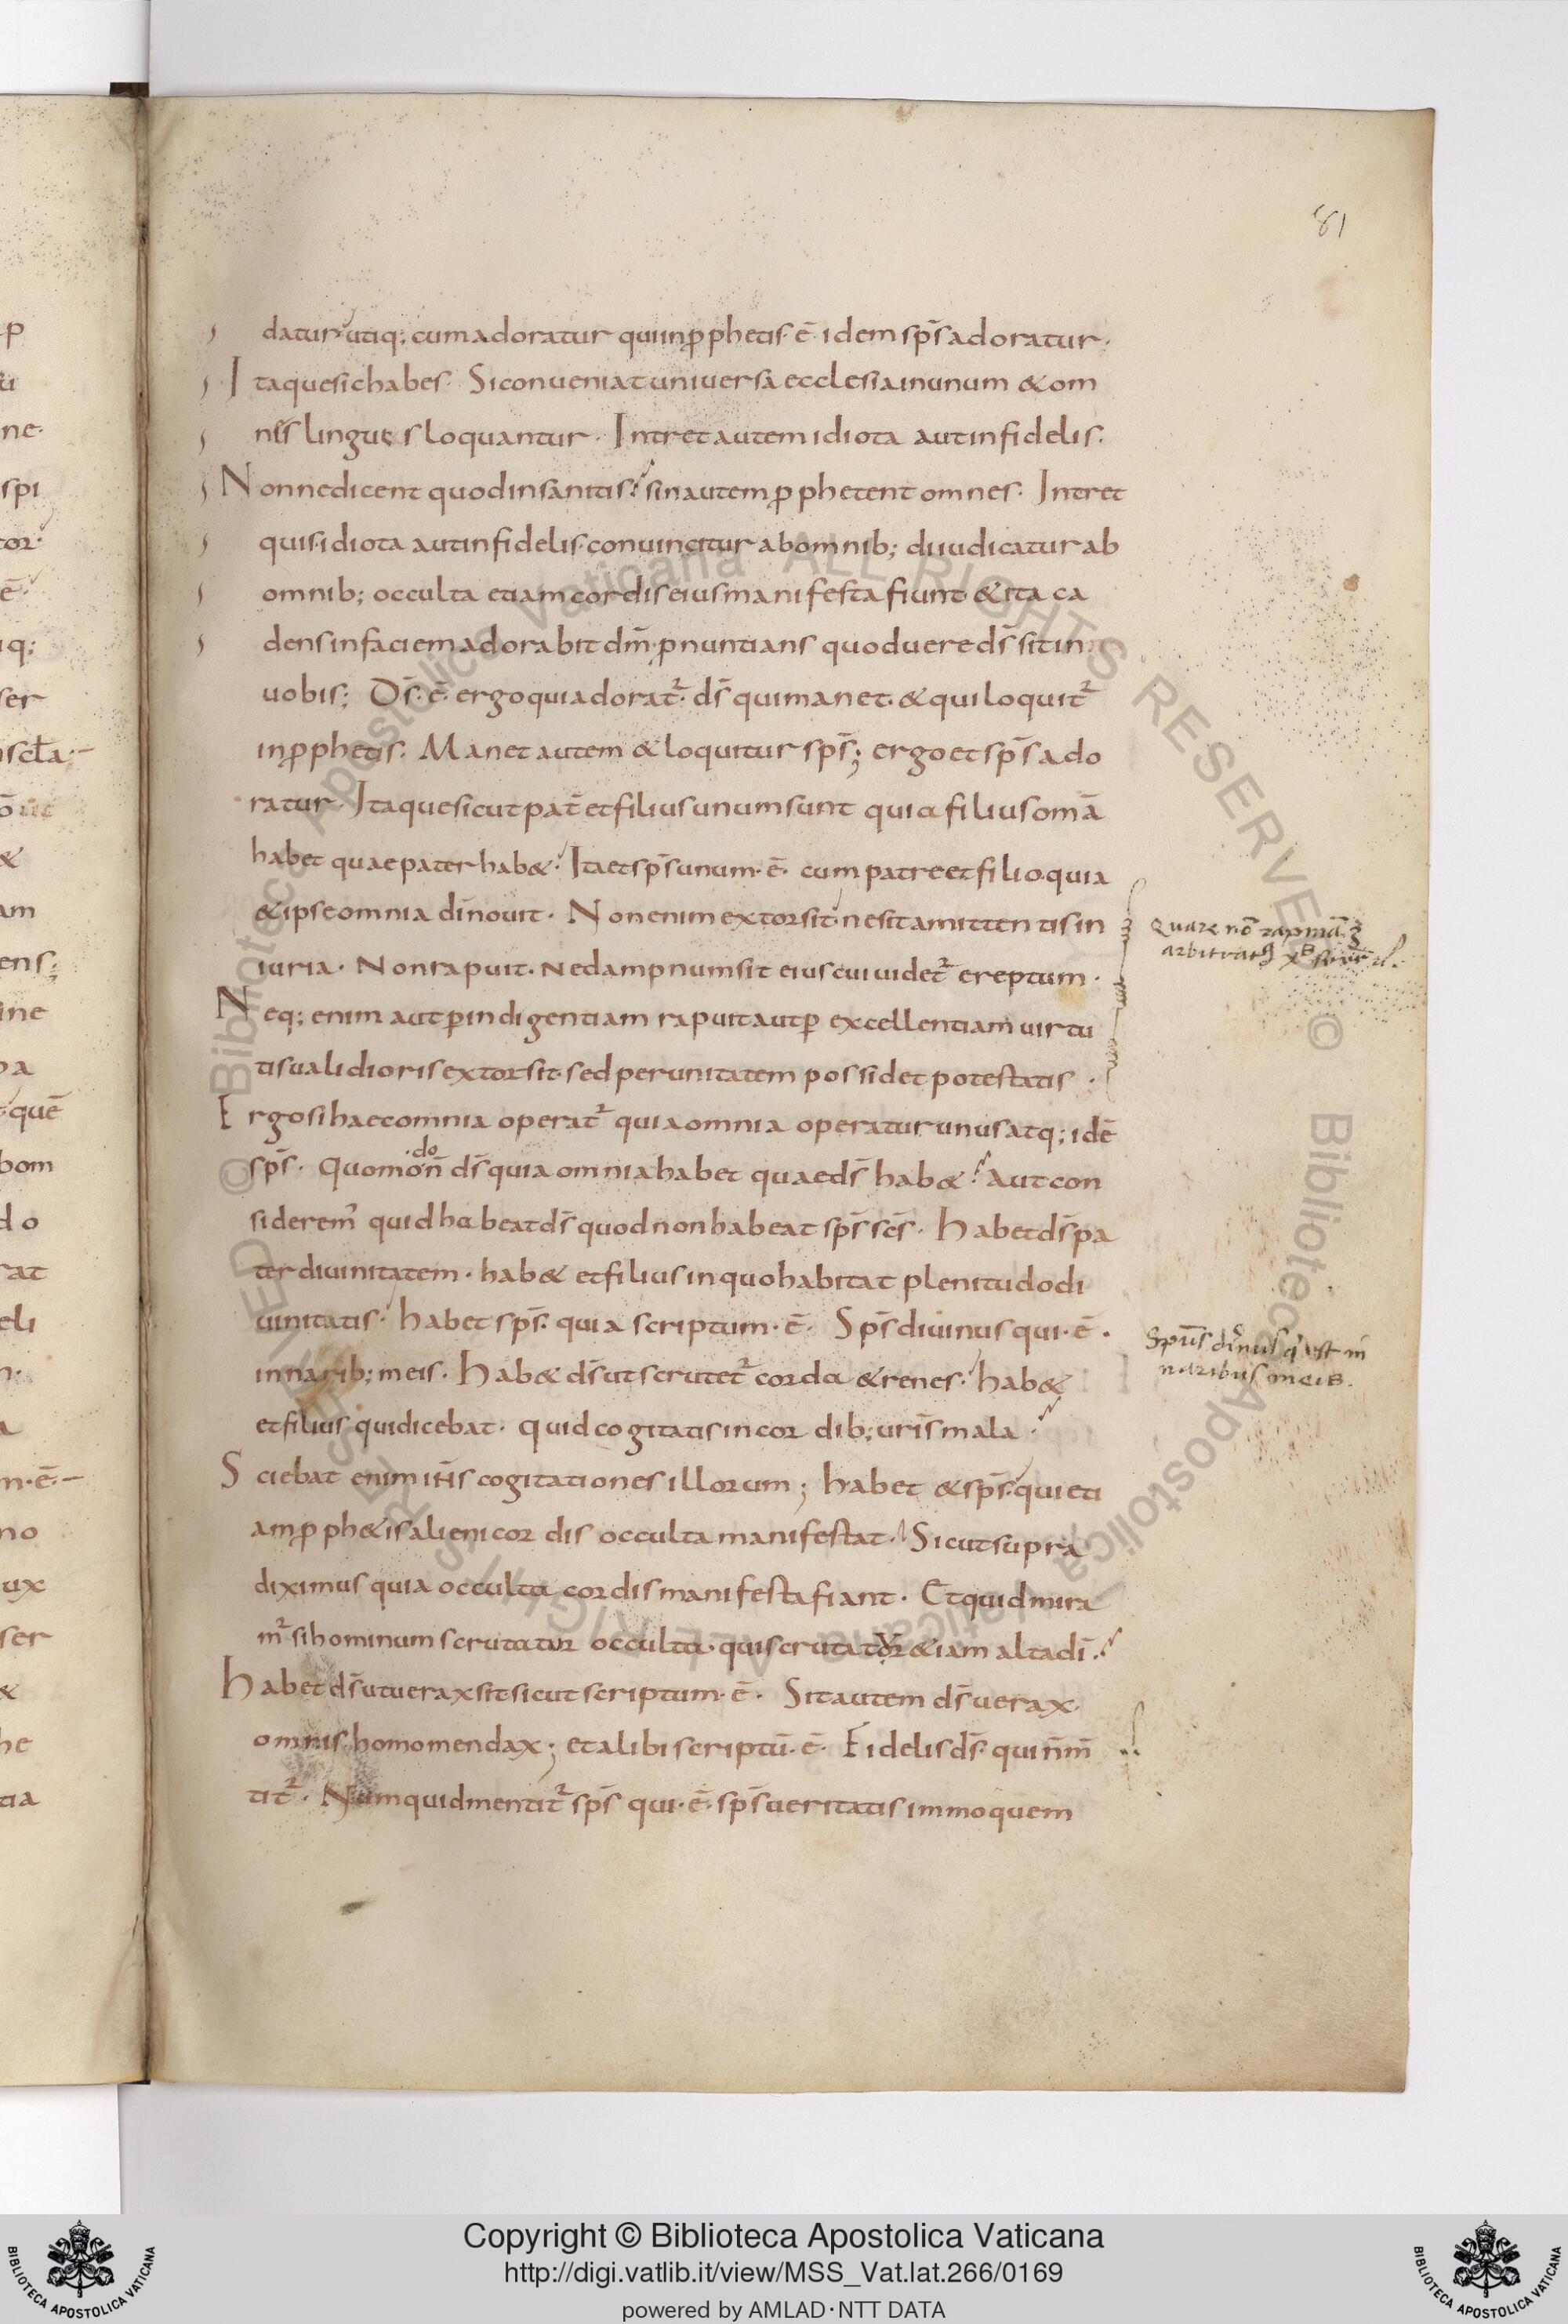 81
datur utiq; cum adoratur qui in ꝓphetis ·ē· idem sp̄s adoratur·
Itaque sic habes· Si conueniat uniuersa ecclesia in unum & om
nes̄ linguęs loquantur· Intret autem idiota aut infidelis·
Nonne dicent quod insanitis? sin autem ꝓphetent omnes· Intret
quis idiota aut infidelis· conuincitur ab omnib; diiudicatur ab
omnib; occulta etiam cordis eius manifesta fiunt· & ita ca
dens in faciem adorabit dm̄· ꝓnuntians quod uere ds̄ sit in
uobis; Ds̄ ·ē· ergo qui adorat᷑· ds̄ qui manet· & qui loquit᷑
in ꝓphetis· Manet autem & loquitur sp̄s; ergo et sp̄s ado
ratur· Itaque sicut pat̄ et filius unum sunt quia filius omā
habet quae pater hab&· Ita et sp̄s unum ·ē· cum patre et filio quia
& ipse omnia di nouit· Non enim extorsit ne sit amittentis in
iuria· Non rapuit· ne dampnum sit eius cui uidet᷑ ereptum·
Neq; enim aut ꝑ indigentiam rapuit aut ꝑ excellentiam uirtu
tis ualidioris extorsit· sed per unitatem possidet potestatis·
Ergo si haec omnia operat᷑ quia omnia operatur unus atq; idē
sp̄s· Quomo·do· n̄ ds̄ quia omnia habet quae ds̄ hab&? Aut con
siderem᷒ quid habeat ds̄ quod non habeat sp̄s sc̄s· Habet ds̄ pa
ter diuinitatem· hab& et filius in quo habitat plenitudo di
uinitatis· habet sp̄s· quia scriptum ·ē· Sp̄s diuinus qui ·ē·
in narib; meis· Hab& ds̄ ut scrutet᷑ corda & renes· hab&
et filius qui dicebat· quid cogitatis in cordib; uris̄ mala·
Sciebat enim ih̄s cogitationes illorum; habet & sp̄s· qui eti
am ꝓph&is alieni cordis occulta manifestat· Sicut supra
diximus quia occulta cordis manifesta fiant· Et quid mira
m᷑ si hominum scrutatur occulta· qui scrutator & iam alta di·
Habet ds̄ ut uerax sit· sicut scriptum ·ē· Sit autem ds̄ uerax·
omnis homo mendax; et alibi scriptū ·ē· Fidelis ds̄· qui n̄ m̄
tit᷑· Numquid mentit᷑ sp̄s qui ·ē· sp̄s ueritatis immo quem
Quare nō rapinā
Spūs diuinus q' est in
naribus meis.
Copyright © Biblioteca Apostolica Vaticana
http://digi.vatlib.it/view/MSS_Vat.lat.266/0169
powered by AMLAD·NTT DATA
BIBLIOTECA APOSTOLICA VATICANA
BIBLIOTECA APOSTOLICA VATICANA
© Biblioteca Apostolica Vaticana ALL RIGHTS RESERVED